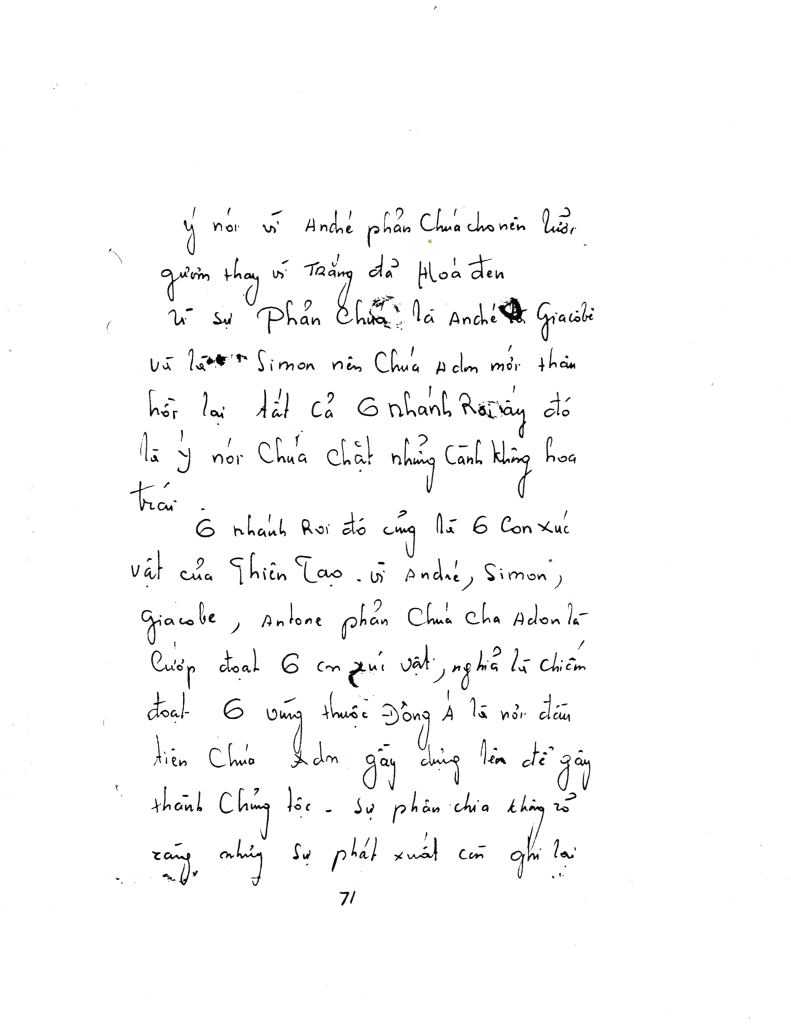 ý nói vì André phản Chúa cho nên lưởi
gươm thay vì Trắng đả Hoá đen
vì sự Phản Chúa là André Giacôbê
và là Simon nên Chúa Adon mới thân
hồi lại tất cả 6 nhánh Roi ấy đó
là ý nói Chúa chặt những Cành không hoa
trái.
6 nhánh Roi đó củng là 6 Con xuc
vật của Thiên Tạo. vì André, Simon,
Giacobe, Antone phản Chúa cha Adon là
Cướp đoạt 6 con xúc vật, nghỉa là chiếm
đoạt 6 vùng thuộc Đông Á là nơi đầu
tiên Chúa Adon gầy dựng lên để gây
thành Chủng tộc - sự phân chia không rỏ
ràng nhưng sự phát xuất còn ghi lại
71